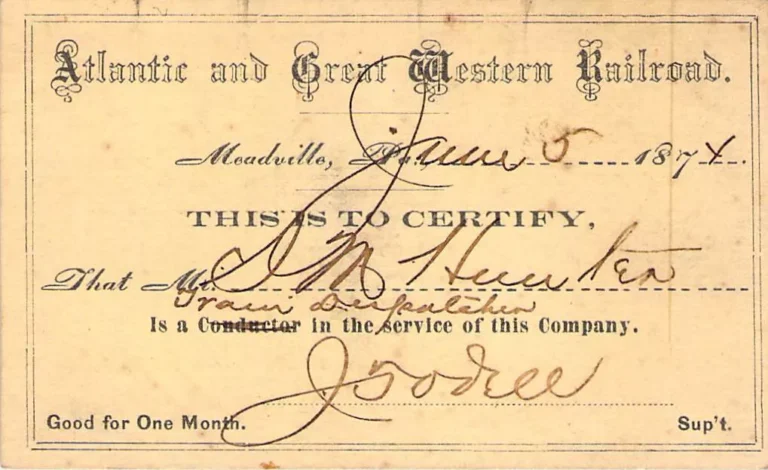 Atlantic and Great Western Railroad.
Meadville, Pa., June 5 1874.
THIS IS TO CERTIFY,
That Mr. I M Hunter
Train Despatcher
Is a Conductor in the service of this Company.
J Odell
Good for One Month. Sup't.